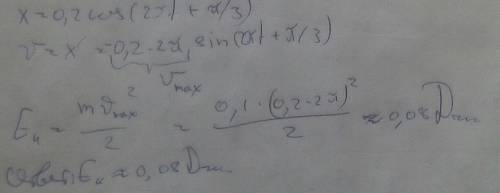 x=0,2cos(2πt + π/3)
v = x = -0,2·2π sin(2πt + π/3)
v max
Eк = mv²max / 2 = 0,1·(0,2·2π)² / 2 ≈ 0,08 Дж
ответ: Eк ≈ 0,08 Дж